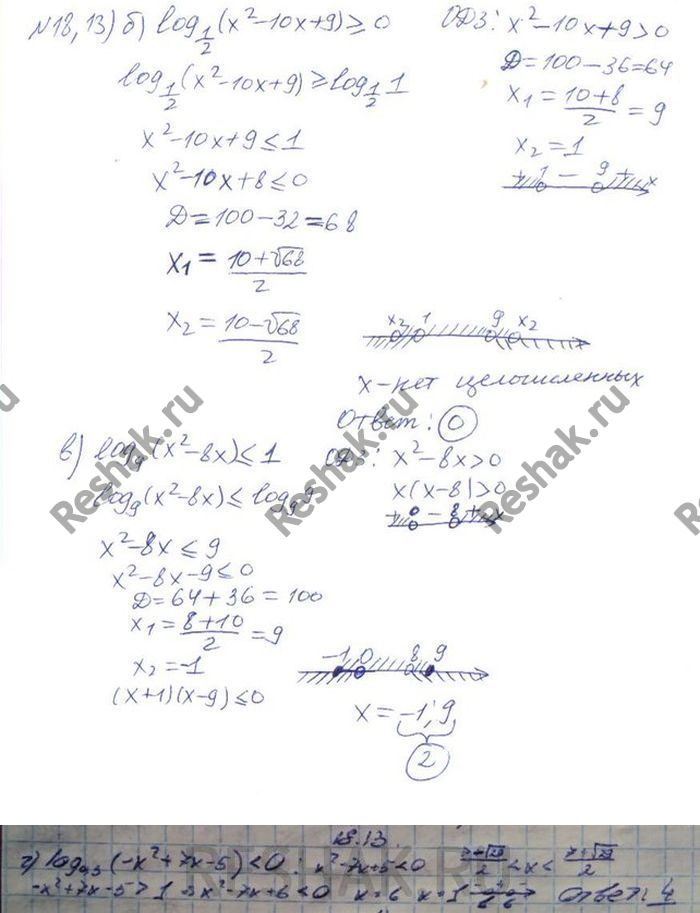 №18,13) б) log_{1/2}(x²-10x+9)≥0
ОДЗ: x²-10x+9>0
log_{1/2}(x²-10x+9)≥log_{1/2}1
D=100-36=64
x₁=(10+8)/2=9
x²-10x+9≤1
x₂=1
x²-10x+8≤0
+ 1 - 9 + x
D=100-32=68
x₁=(10+√68)/2
x₂=(10-√68)/2
x₂ 1 9 x₂
x-нет целочисленных
Ответ: 0
в) log₉(x²-8x)≤1
ОДЗ: x²-8x>0
log₉(x²-8x)≤log₉9
x(x-8)>0
+ 0 - 8 + x
x²-8x≤9
x²-8x-9≤0
D=64+36=100
x₁=(8+10)/2=9
x₂=-1
-1 0 8 9
(x+1)(x-9)≤0
x=-1; 9
2
Reshak.ru
Reshak.ru
Reshak.ru
18.13.
г) log₀,₃(-x²+7x-5)<0: x²-7x+5<0
-x²+7x-5>1 x²-7x+6<0 x=6 x=1 Ответ: 4
RESHAK.RU